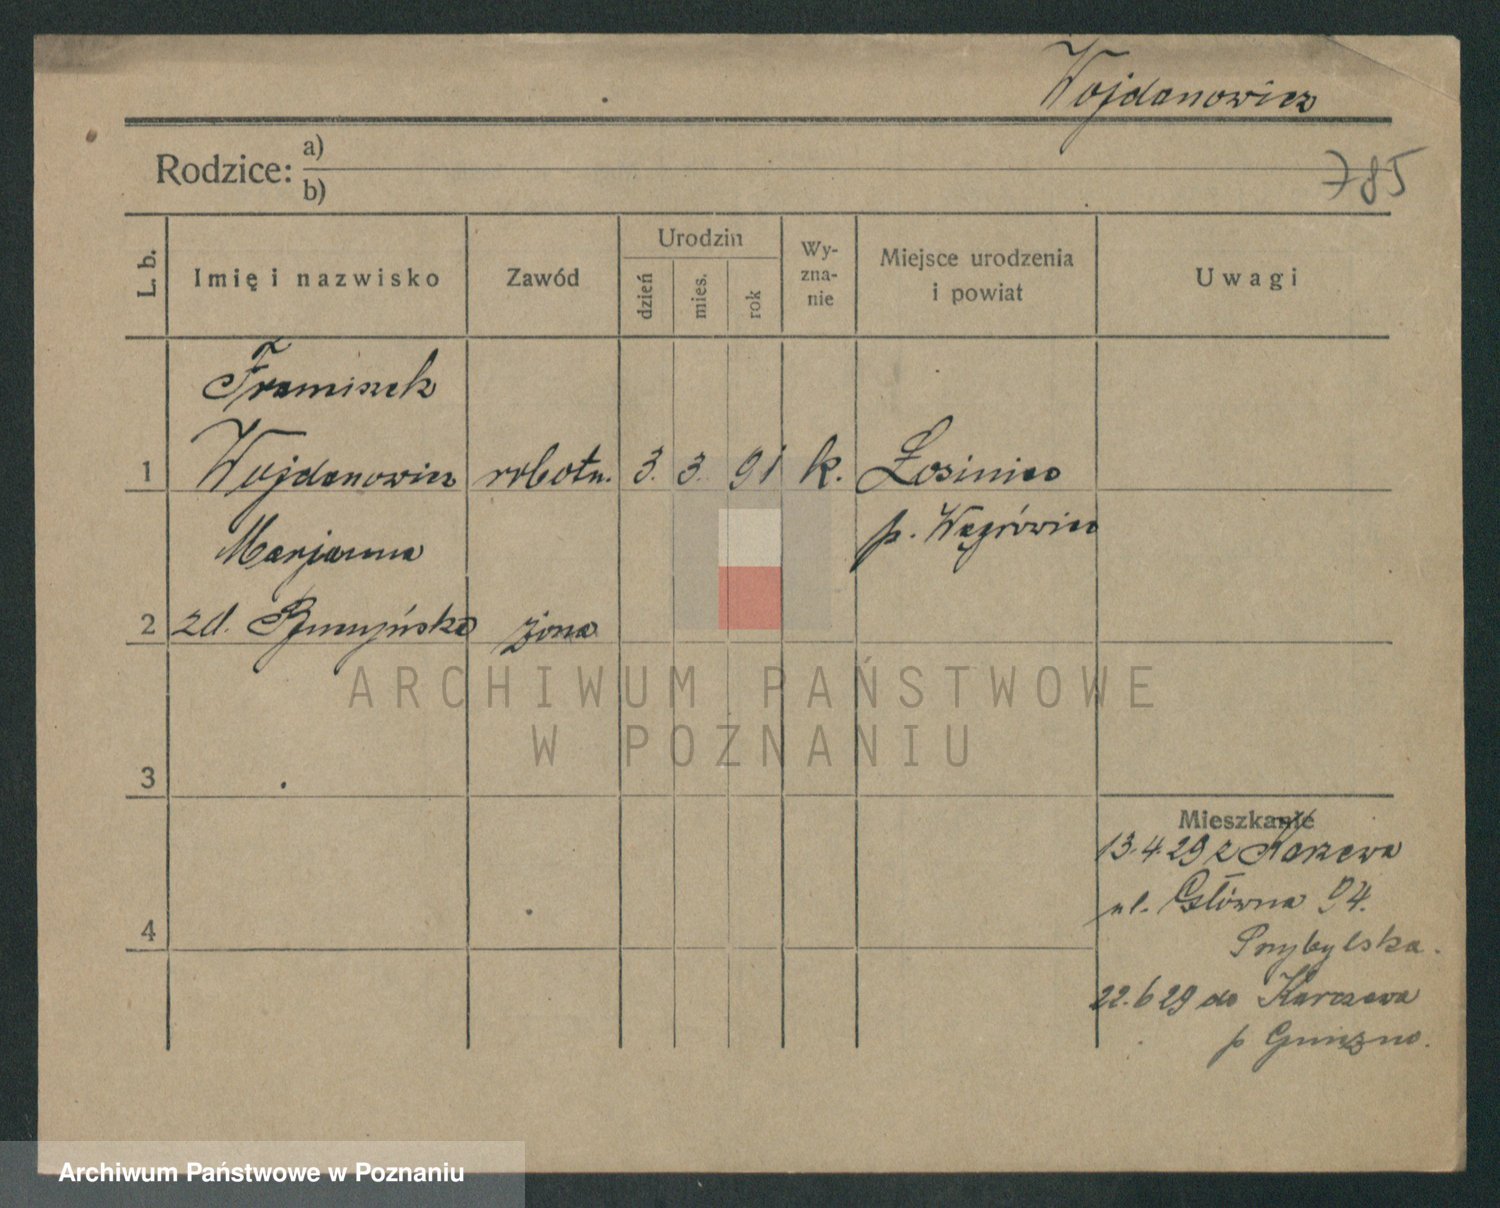 Wojdanowicz
Rodzice: a)
b)
785
L. b.
Imię i nazwisko
Zawód
Urodzin
dzień
mies.
rok
Wy-
zna-
nie
Miejsce urodzenia
i powiat
Uwagi
Franciszek
1 Wojdanowicz robotn. 3. 3. 91 k. Łosiniec
p. Wągrówiec
Marjanna
2 zd. żona
3
4
Mieszkanie
13.4.29 z
ul. Główna 94.
Przybylska.
22.6 29 do Karczewa
p Gniezno.
ARCHIWUM PAŃSTWOWE
W POZNANIU
Archiwum Państwowe w Poznaniu